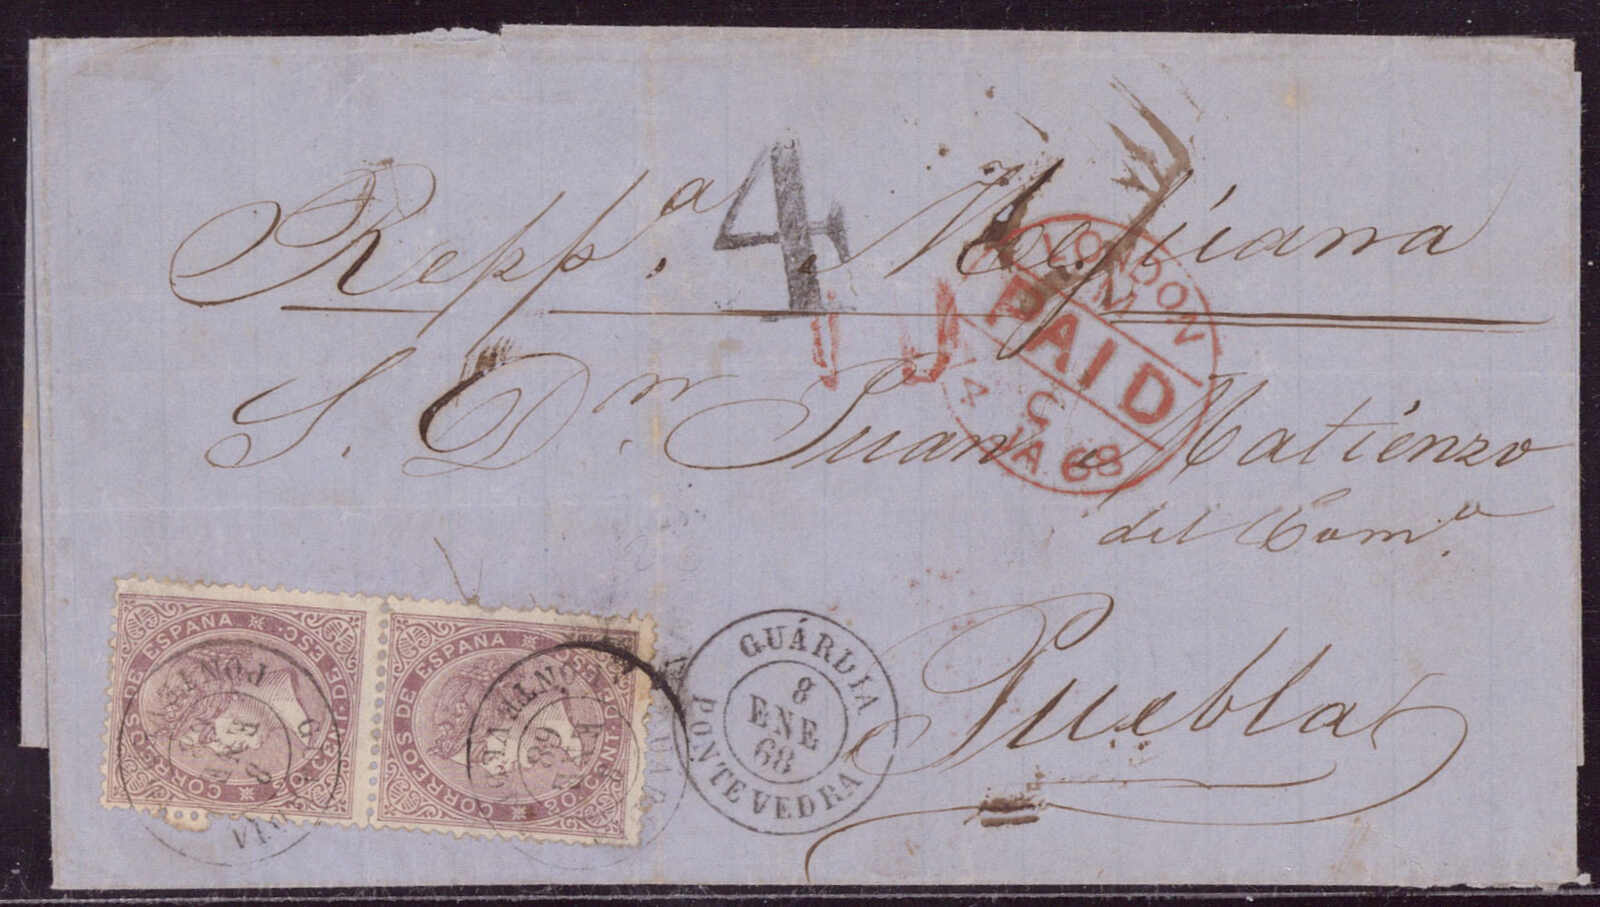 Repp.a Mejicana
4
10
LONDON
M
PAID
C
14 JA 68
S. Dn. Juan Matienzo
del Com.o
Puebla
CORREOS DE ESPAÑA
CENT. DE ESC.
CORREOS DE ESPAÑA
20 CENT. DE ESC.
GUÁRDIA
8
ENE
68
PONTEVEDRA